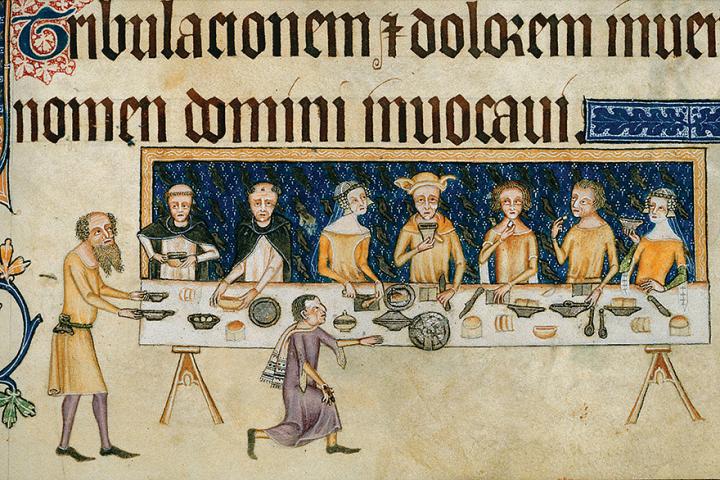 Tribulacionem ⁊ dolorem inuen
nomen domini inuocaui.